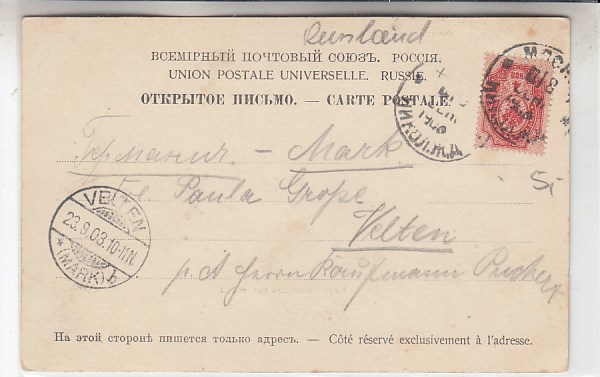 Russland
ВСЕМІРНЫЙ ПОЧТОВЫЙ СОЮЗЪ. РОССІЯ.
UNION POSTALE UNIVERSELLE. RUSSIE.
ОТКРЫТОЕ ПИСЬМО. — CARTE POSTALE.
Германія – Mark
Paula Grope
Velten
p. A Herrn Kaufmann
5
VELTEN
23.9.03.10-11N.
* (MARK) b
На этой сторонѣ пишется только адресъ. — Côté réservé exclusivement à l'adresse.